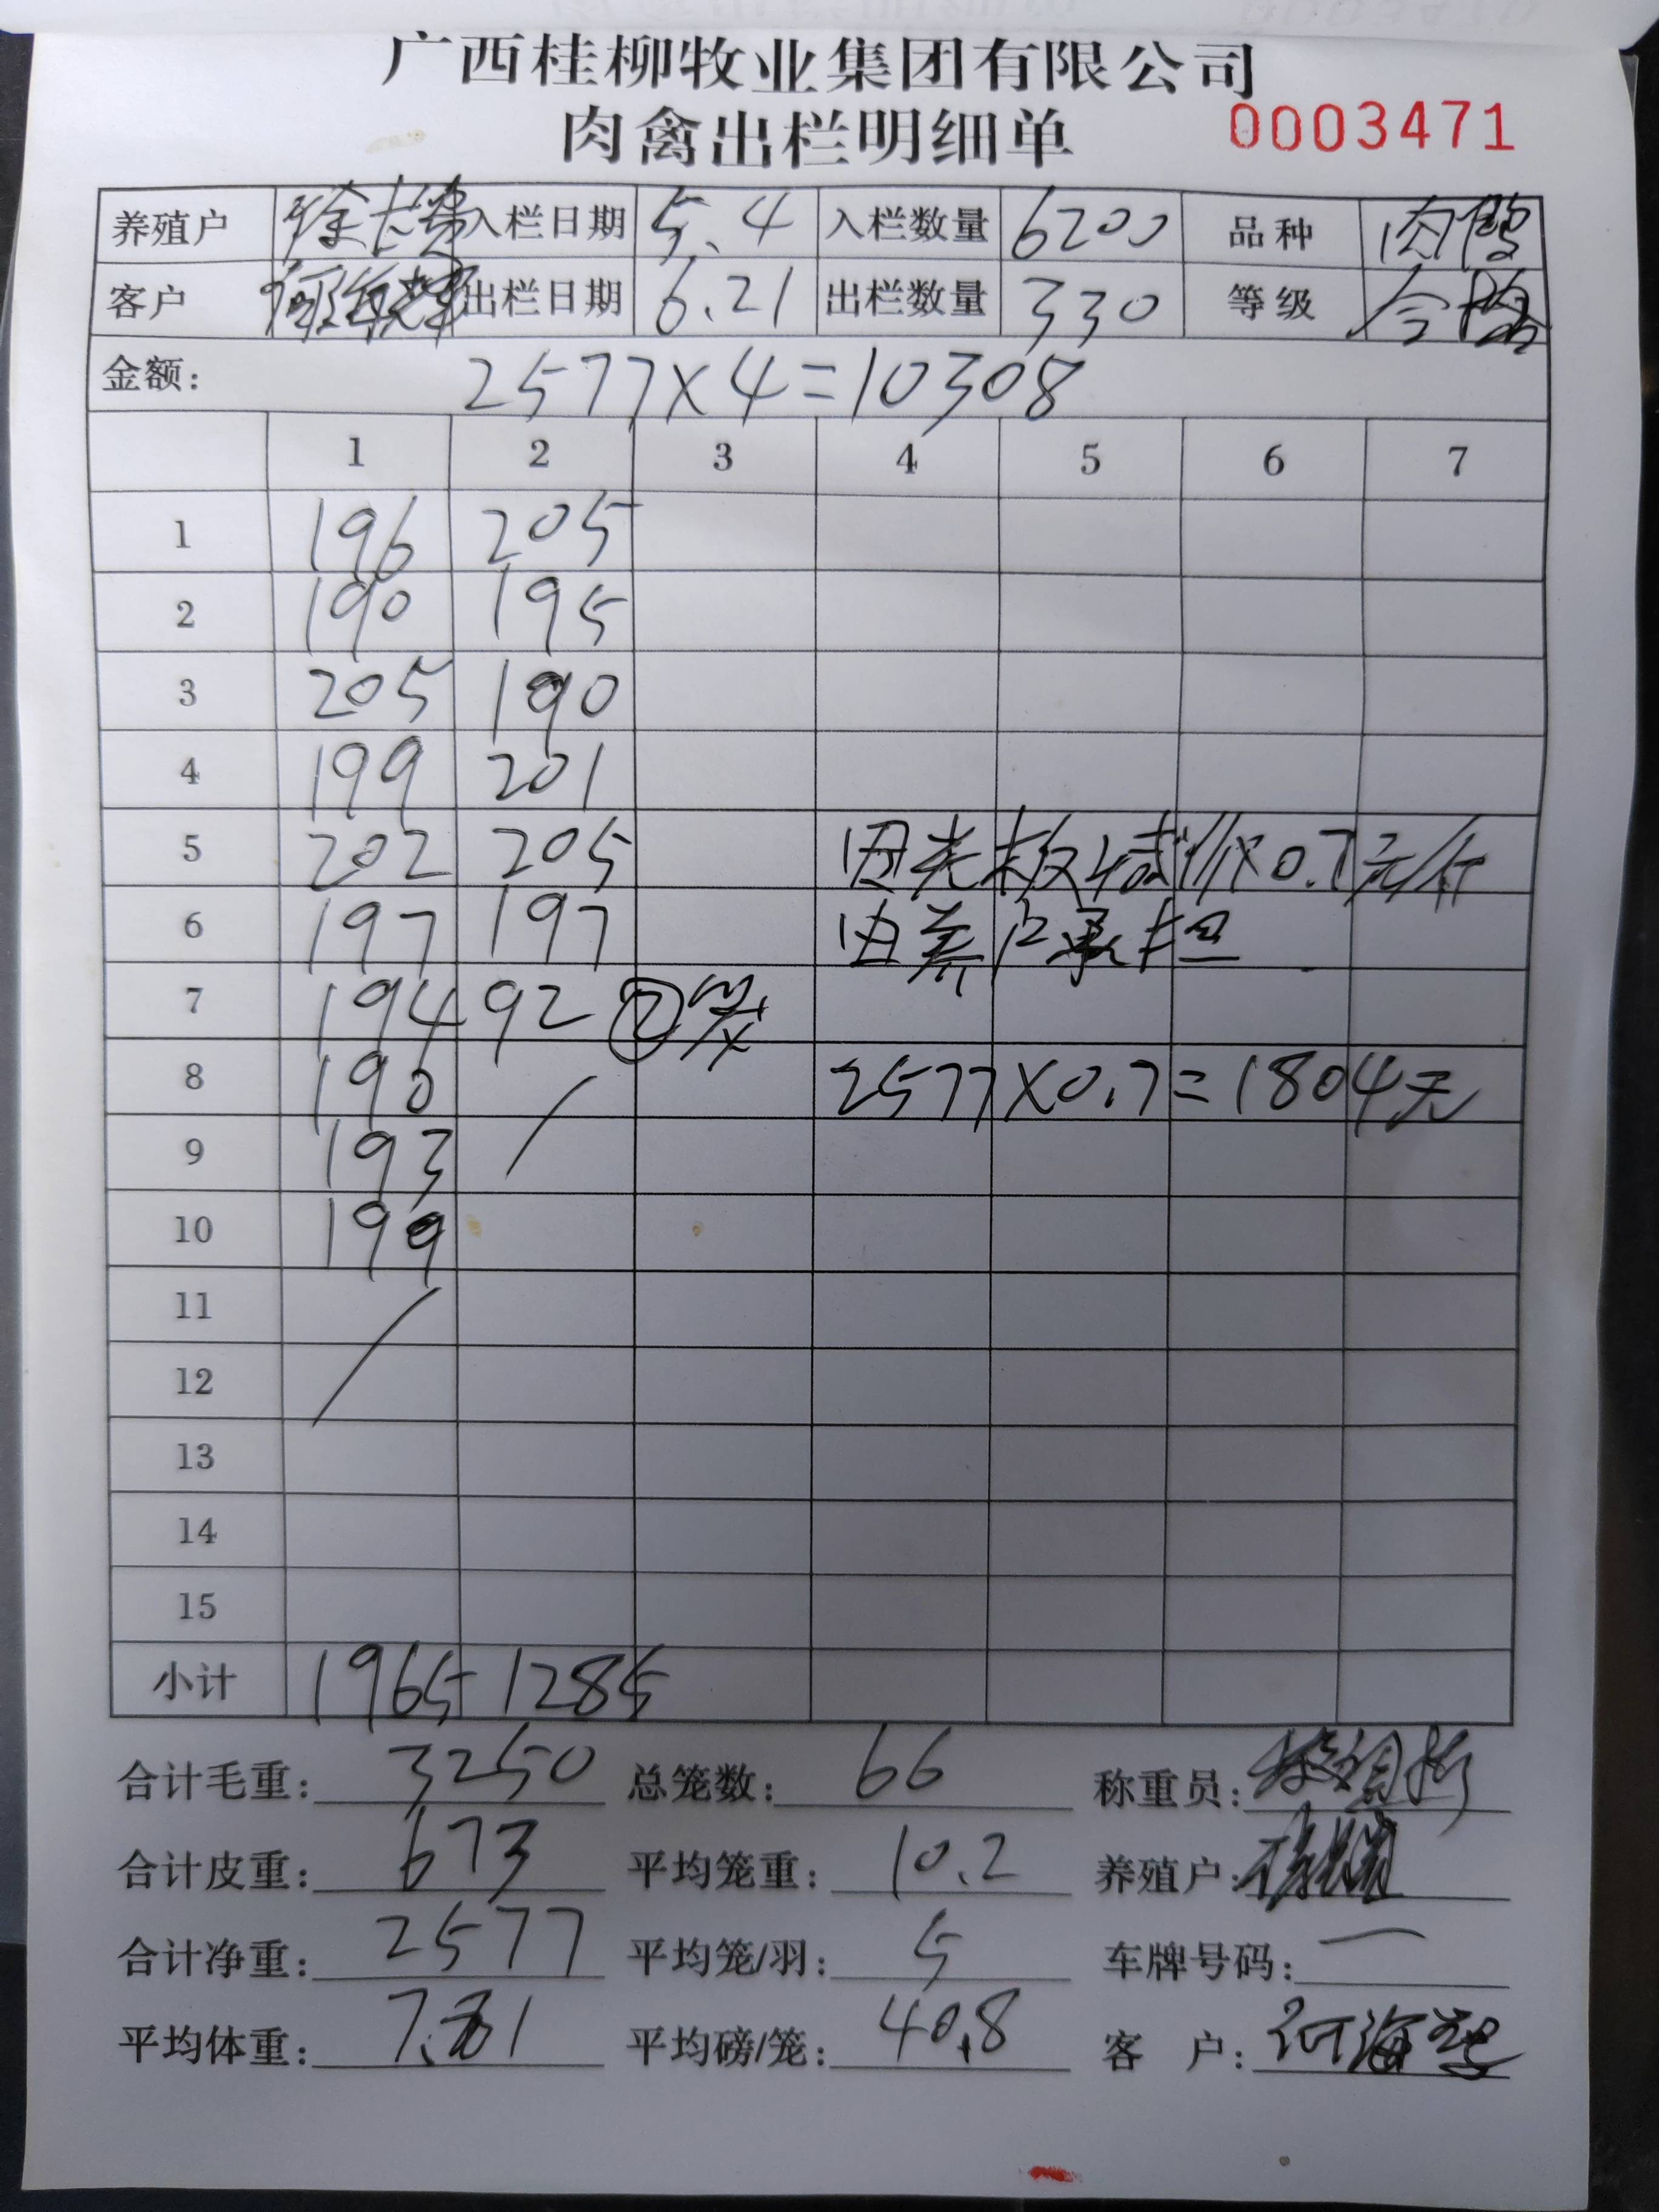 广西桂柳牧业集团有限公司
肉禽出栏明细单 0003471
养殖户 入栏日期 5.4 入栏数量 6200 品种 肉鸭
客户 出栏日期 6.21 出栏数量 330 等级 合格
金额: 2577×4=10308
1 2 3 4 5 6 7
1 196 205
2 190 195
3 205 190
4 199 201
5 202 205 因光板减价0.7元/斤
6 197 197 由养户承担
7 194 92 ②笼
8 190 2577×0.7=1804元
9 193
10 199
11
12
13
14
15
小计 1965 1285
合计毛重: 3250 总笼数: 66 称重员:
合计皮重: 673 平均笼重: 10.2 养殖户:
合计净重: 2577 平均笼/羽: 5 车牌号码: 一
平均体重: 7.81 平均磅/笼: 40.8 客 户: